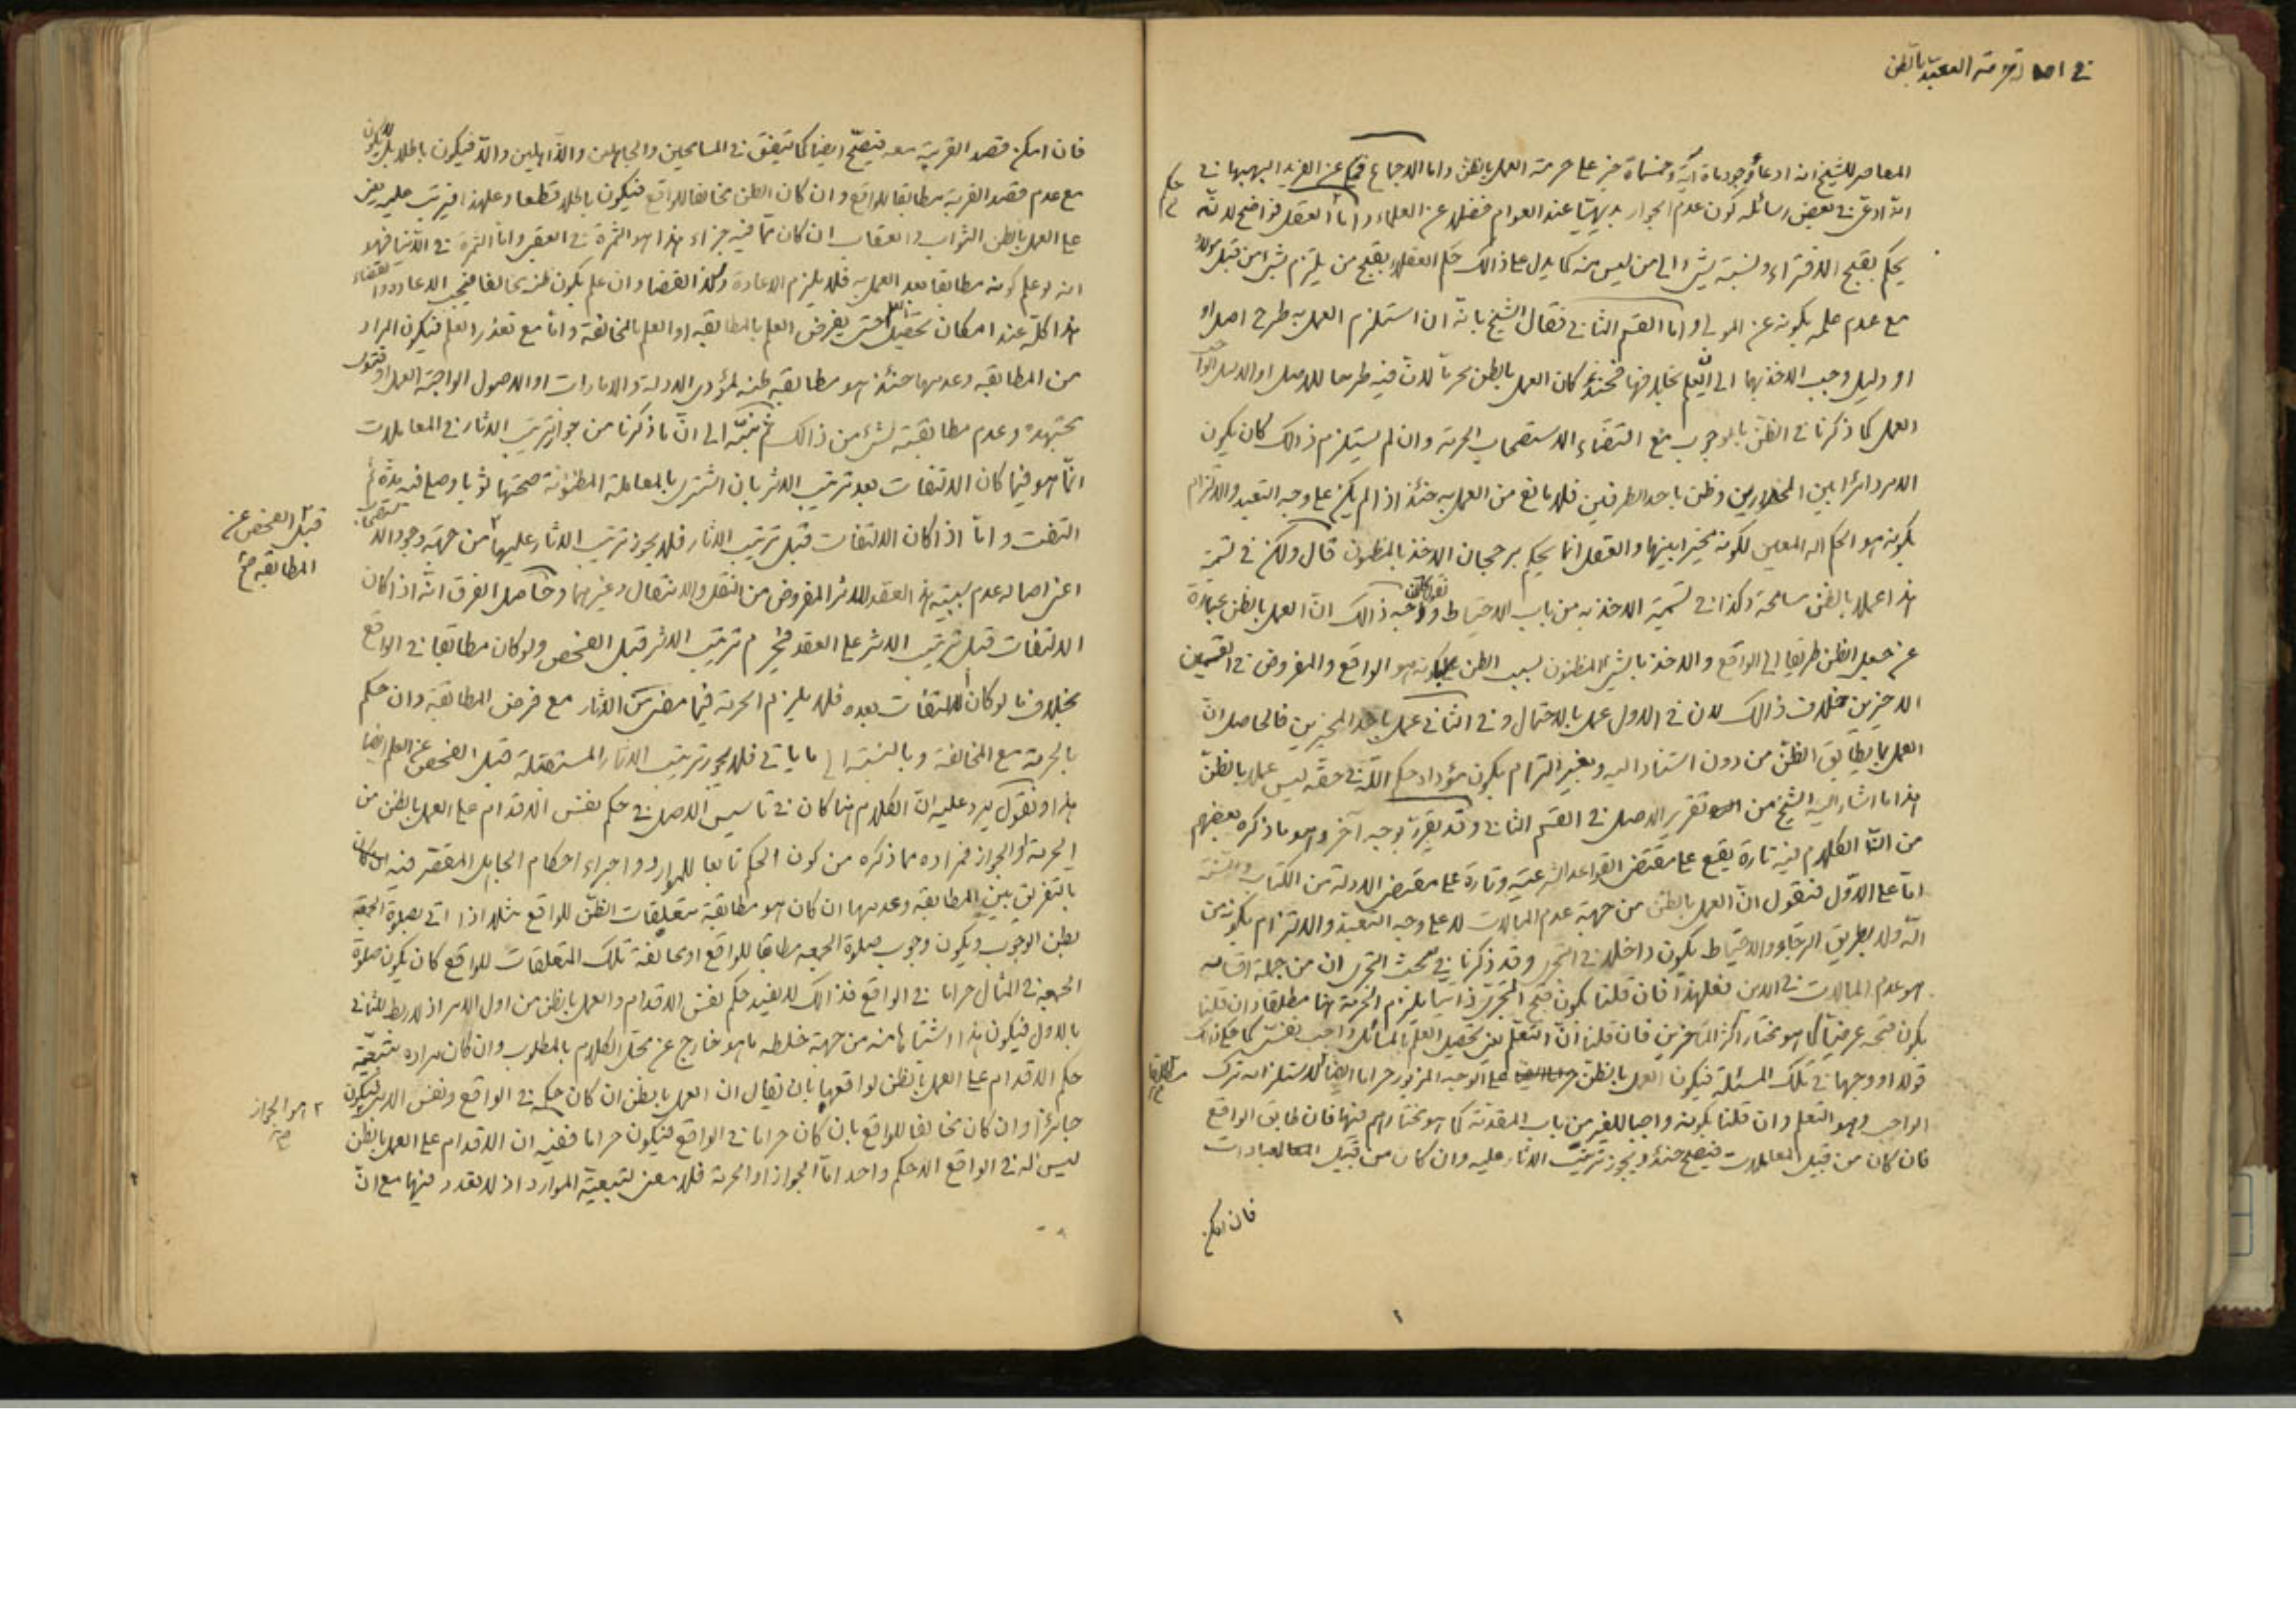 في اصالة حرمة التعبد بالظن
المعاصر للشيخ انه ادعا وجود ماة آية وخمسماة خبر على حرمة العمل بالظن واما الاجماع فكما عن الفريد البهبهاني
حكم
انه ادعى في بعض رسائله كون عدم الجواز بديهيا عند العوام فضلا عن العلماء واما العقل فواضح لانه
يحكم بقبح الافتراء ونسبة شيء الى من ليس منه كما يدل على ذالك حكم العقلاء بقبح من يلتزم شيئا من قبل مولاه
مع عدم علمه بكونه عن المولى واما القسم الثاني فقال الشيخ بانه ان استلزم العمل به طرح اصل او
او دليل وجب الاخذ بهما الى ان يعلم بخلافهما فحينئذ كان العمل بالظن محرما لان فيه طرحا للاصل او الدليل
العمل كما ذكرنا في الظن بالوجوب مع اقتضاء الاستصحاب الحرمة وان لم يستلزم ذالك كان يكون
الامر دائرا بين المحذورين وظن باحد الطرفين فلا مانع من العمل به حينئذ اذا لم يكن على وجه التعبد والالتزام
بكونه هو الحكم المعين لكونه مخيرا بينهما والعقل انما يحكم برجحان الاخذ بالمظنون قال ولكن في تسمية
هذا عملا بالظن مسامحة وكذا في تسمية الاخذ به من باب الاحتياط ووجه ذالك ان العمل بالظن عبارة
عن جعل الظن طريقا الى الواقع والاخذ بالشيء المظنون بسبب الظن بكونه هو الواقع والمفروض في القسمين
الاخيرين خلاف ذالك لان في الاول عمل بالاحتمال وفي الثاني عمل باحد المخيرين فالحاصل ان
العمل بما يطابق الظن من دون استناد اليه وبغير التزام بكون مؤداه حكم الله في حقه ليس عملا بالظن
هذا ما اشار اليه الشيخ من تقرير الاصل في القسم الثاني وقد يقرر بوجه آخر وهو ما ذكره بعضهم
من ان الكلام فيه تارة يقع على مقتضى القواعد الشرعية وتارة على مقتضى الادلة من الكتاب والسنة
اما على الاول فنقول ان العمل بالظن من جهة عدم المبالات لا على وجه التعبد والالتزام بكونه من
الله ولا بطريق الرجاء والاحتياط يكون داخلا في التجري وقد ذكرنا في مبحث التجري ان من جملة اقسامه
هو عدم المبالات في الدين فعلى هذا فان قلنا بكون قبح التجري ذاتيا يلزم الحرمة هنا مطلقا وان قلنا
بكون قبحه عرضيا كما هو مختار اكثر المتاخرين فان قلنا ان التعلم يعني تحصيل العلم بالمسائل واجب نفسي كما
قولا او وجها في تلك المسئلة فيكون العمل بالظن على الوجه المزبور حراما ايضا لاستلزامه ترك
مطلقا
الواجب وهو التعلم وان قلنا بكونه واجبا للغير من باب المقدمة كما هو مختارهم فيها فان طابق الواقع
فان كان من قبيل المعاملات فيصح حينئذ ويجوز ترتيب الاثار عليه وان كان من قبيل العبادات
فان امكن
فان امكن قصد القربة معه فيصح ايضا كما يتفق في المسامحين والجاهلين والذاهلين والا فيكون باطلا
مع عدم قصد القربة مطابقا للواقع وان كان الظن مخالفا للواقع فيكون باطلا قطعا وعلى هذا فيترتب عليه يعني
على العمل بالظن الثواب والعقاب ان كان مما فيه جزاء هذا هو الثمرة في العقبى واما الثمرة في الدنيا فهو
انه لو علم كونه مطابقا بعد العمل به فلا يلزم الاعادة وكذا القضاء وان علم بكون ظنه مخالفا فيجب الاعادة والقضاء
هذا كله عند امكان تحصيل العلم حتى يفرض العلم بالمطابقة او العلم بالمخالفة واما مع تعذر العلم فيكون المراد
من المطابقة وعدمها حينئذ هو مطابقة ظنه لمؤدى الادلة والامارات او الاصول الواجبة العمل او فتوى
مجتهده وعدم مطابقته لشيء من ذالك ثم نبه الى ان ما ذكرنا من جواز ترتيب الاثار في المعاملات
انما هو فيما كان الالتفات بعد ترتيب الاثر بان اشترى بالمعاملة المظنونة صحتها ثوبا وصلى فيه مدة ثم
التفت واما اذا كان الالتفات قبل ترتيب الاثار فلا يجوز ترتيب الاثار عليها من جهة وجود الاستصحاب
قبل الفحص عن
المطابقة صح
اعني اصالة عدم سببية هذا العقد للاثر المفروض من النقل والانتقال وغيرهما وحاصل الفرق انه اذا كان
الالتفات قبل ترتيب الاثر على العقد فيحرم ترتيب الاثر قبل الفحص ولو كان مطابقا في الواقع
بخلاف ما لو كان الالتفات بعده فلا يلزم الحرمة فيما مضى من الاثار مع فرض المطابقة وان حكم
بالحرمة مع المخالفة وبالنسبة الى ما ياتي فلا يجوز ترتيب الاثار المستقبلة قبل الفحص عن العلم ايضا
هذا ونقول يرد عليه ان الكلام هنا كان في تاسيس الاصل في حكم نفس الاقدام على العمل بالظن من
الحرمة او الجواز فمراده مما ذكره من كون الحكم تابعا للموارد واجراء احكام الجاهل المقصر فيه
بالتفريق بين المطابقة وعدمها ان كان هو مطابقة متعلقات الظن للواقع مثلا اذا اتى بصلوة الجمعة
بظن الوجوب ويكون وجوب صلوة الجمعه مطابقا للواقع او مخالفة تلك المتعلقات للواقع كان يكون صلوة
الجمعه في المثال حراما في الواقع فذالك لا يفيد حكم نفس الاقدام والعمل بالظن من اول الامر اذ لا ربط للثاني
بالاول فيكون هذا اشتباها منه من جهة خلطه ما هو خارج عن محل الكلام بالمطلوب وان كان مراده تبعية
حكم الاقدام على العمل بالظن لواقعها بان يقال ان العمل بالظن ان كان حكمه في الواقع ونفس الامر فيكون
هو الجواز
جائزا وان كان مخالفا للواقع بان كان حراما في الواقع فيكون حراما ففيه ان الاقدام على العمل بالظن
ليس له في الواقع الا حكم واحد اما الجواز او الحرمة فلا معنى لتبعية الموارد اذ لا تعدد فيها مع ان